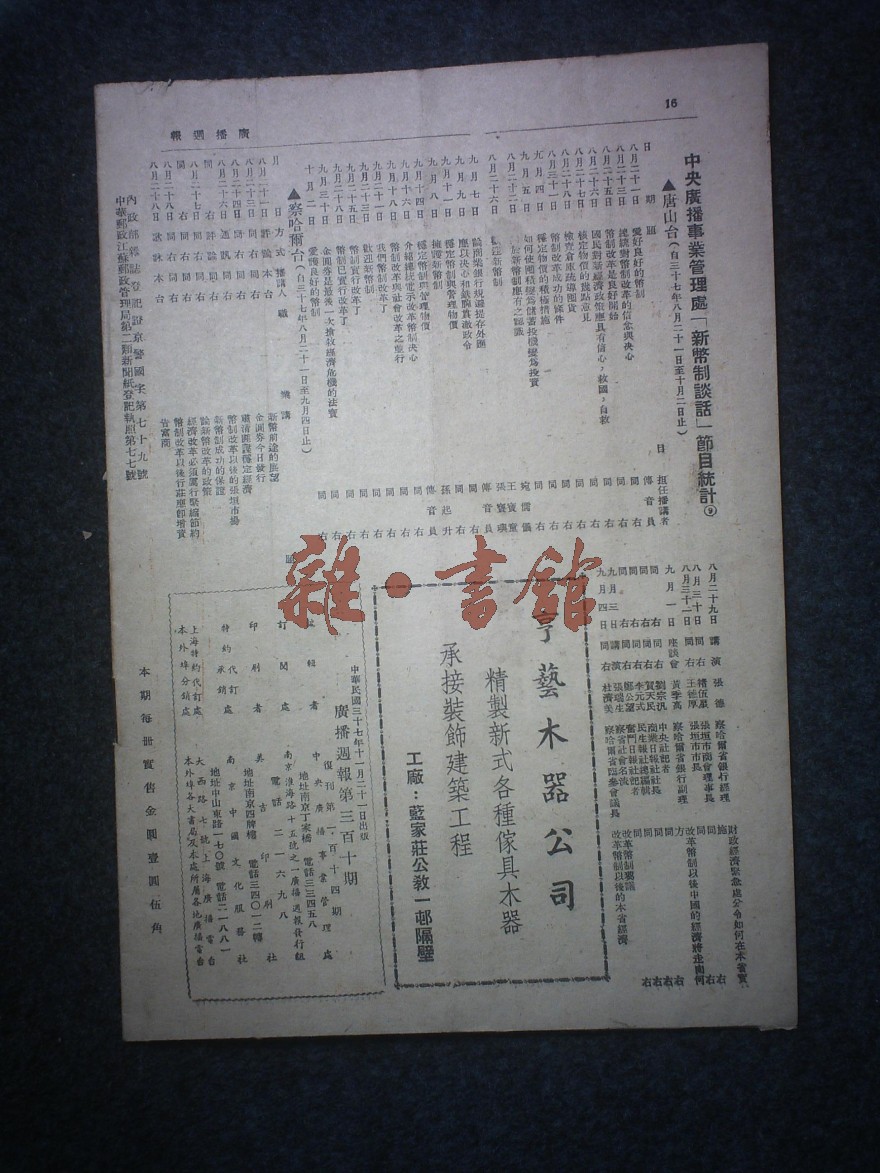 16
廣播週報
中央廣播事業管理處「新幣制談話」節目統計⑨
▲唐山台(自三十七年八月二十一日至十月二日止)
日期 題目 担任播講者
八月二十一日 愛好良好的幣制 傳音員
八月二十三日 總統對幣制改革的信念與决心 同右
八月二十五日 幣制改革是良好開始 同右
八月二十六日 國民對新經濟政策應具有信心,救國,自救 同右
八月二十七日 穩定物價的幾點意見 同右
八月二十八日 檢查倉庫疏導囤貨 同右
八月三十一日 幣制改革成功的條件 同右
九月四日 穩定物價的積極措施 同右
九月五日 如何使囤積變爲儲蓄投機變爲投資
八月二十二日 於新幣制應有之認識
八月二十六日 歡迎新幣制
九月七日 論商業銀行統滬提存外匯 傳音員
九月九日 應以决心和鐵腕貫澈政令 同右
九月十一日 穩定幣制與管理物價 孫起升
九月八日 擁護新幣制 同右
九月十四日 穩定幣制與管理物價 傳音員
九月十六日 介紹總統電示改革幣制决心 同右
九月十八日 幣制改革與社會改革之並行 同右
九月二十一日 我們幣制改革了 同右
九月二十三日 歡迎新幣制 同右
九月二十五日 幣制實行改革了 同右
九月二十八日 幣制已實行改革了 同右
九月三十日 金圓券是最後一次搶救經濟危機的法寶 同右
十月二日 愛護良好的幣制 同右
▲察哈爾台(自三十七年八月二十一日至九月四日止)
月日 方式 播講人 職銜 講題
八月二十一日 評論 本台 新幣前途的展望
八月二十三日 同右 同右 金圓券今日發行
八月二十四日 同右 同右 肅清囤謀穩定經濟
八月二十六日 通訊 同右 幣制改革以後的張垣市場
同右 評論 同右 新幣制成功的保證
八月二十七日 同右 同右 論新幣改革的政策
同右 同右 同右 經濟改革必須厲行緊縮節約
八月二十八日 同右 同右 幣制改革以後行莊應卽增資
八月二十八日 歌詠 本台 告富商
內政部雜誌登記證京警國字第七十九號
中華郵政江蘇郵政管理局第二類新聞紙登記執照第七七號
八月二十九日 講演 張德 察哈爾省銀行經理 財政經濟緊急處分令如何在本省實施
八月三十日 同右 褚伍星 張垣市商會理事長 同右
八月三十一日 同右 王德厚 張垣市市長 同右
九月一日 座談會 黃季高 察哈爾省銀行副理 改革幣制以後中國的經濟將走向何方
同右 同右 劉宗汎 中央社記者 同右
同右 同右 賀天民 商業日報社社長 同右
同右 同右 李元式 民生報社總編輯 同右
同右 同右 鄭公望 奮鬥日報社記者 同右
九月三日 講演 張瑞生 察省社會名流 改革幣制感議
九月四日 同右 杜濟美 察哈爾省臨參會議長 改革幣制以後的本省經濟
亨藝木器公司
精製新式各種傢具木器
承接裝飾建築工程
工廠:藍家莊公教一邨隔壁
中華民國三十七年十一月二十一日出版
廣播週報第三百十期
復刊第一百十四期
編輯者 中央廣播事業管理處
地址南京丁家橋 電話三三四五八
訂閱處 南京淮海路十五號之一廣播週報發行組
電話二一六九八
印刷者 美吉印刷社
地址南京四牌樓 電話三四〇一二轉
特約代訂處
特約承銷 南京中國文化服務社
地址中山東路一七〇號 電話二一八八一
上海特約代訂處 大西路七號上海廣播電台
本外埠分銷處 本外埠各大書局及本處所屬各地廣播電台
本期每冊實售金圓壹圓伍角
雜·書館